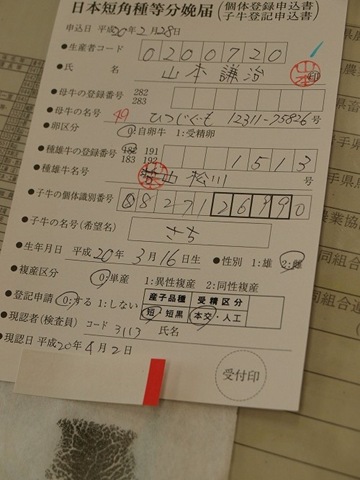 日本短角種等分娩届(個体登録申込書 子牛登記申込書)
申込日 平成20年2月28日
●生産者コード 0200720
●氏名 山本謙治 印
●母牛の登録番号 282 283
●母牛の名号 49 ひつじぐも 12311-75826号
●卵区分 0:自卵牛 1:受精卵
●種雄牛の登録番号 182 191 183 192 1513
●種雄牛名号 山松川 号
●子牛の個体識別番号 0827126990
●子牛の名号(希望名) さち
●生年月日 平成20年3月16日生 ●性別 1:雄 2:雌
●複産区分 0:単産 1:異性複産 2:同性複産
●登記申請 0:する 1:しない 産子品種 短・短黒 受精区分 本交・人工
●現認者(検査員) コード 3113 氏名
●現認日 平成20年4月2日
受付印